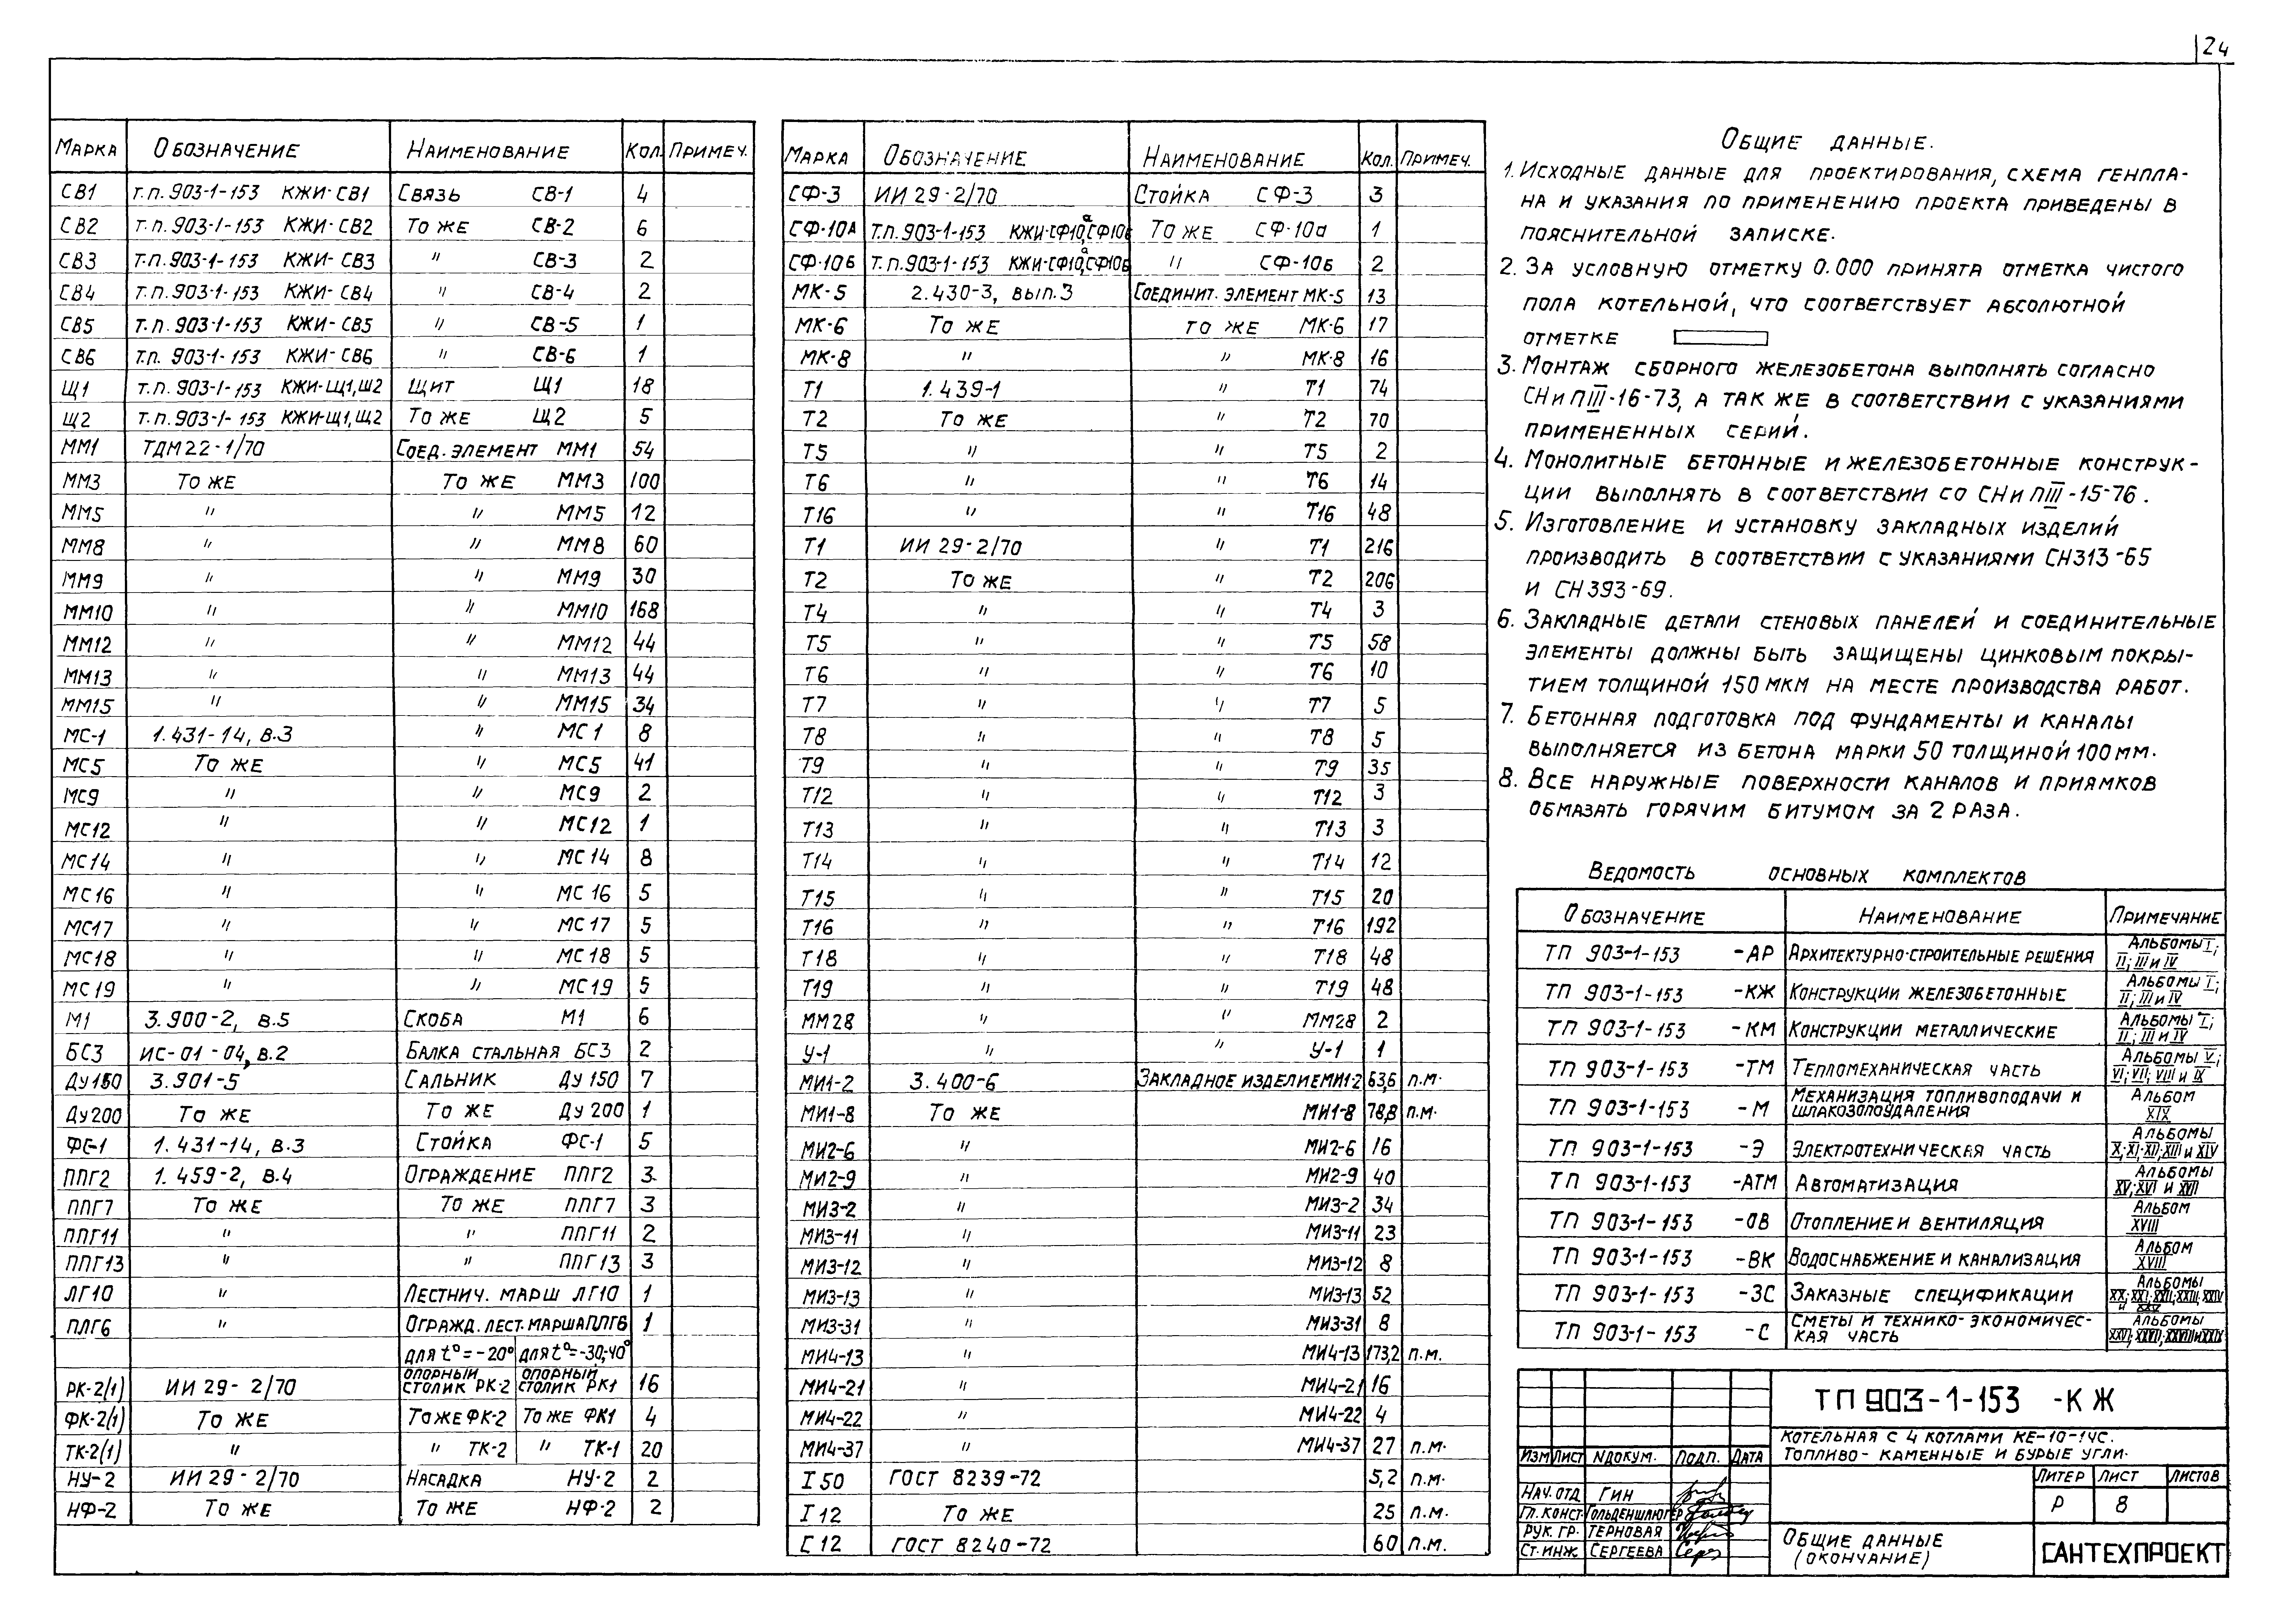 24
Марка Обозначение Наименование Кол. Примеч.
СВ1 т.п. 903-1-153 КЖИ-СВ1 Связь СВ-1 4
СВ2 т.п. 903-1-153 КЖИ-СВ2 То же СВ-2 6
СВ3 т.п. 903-1-153 КЖИ-СВ3 " СВ-3 2
СВ4 т.п. 903-1-153 КЖИ-СВ4 " СВ-4 2
СВ5 т.п. 903-1-153 КЖИ-СВ5 " СВ-5 1
СВ6 т.п. 903-1-153 КЖИ-СВ6 " СВ-6 1
Щ1 т.п. 903-1-153 КЖИ-Щ1,Щ2 Щит Щ1 18
Щ2 т.п. 903-1-153 КЖИ-Щ1,Щ2 То же Щ2 5
ММ1 ТДМ22-1/70 Соед. элемент ММ1 54
ММ3 То же То же ММ3 100
ММ5 " " ММ5 12
ММ8 " " ММ8 60
ММ9 " " ММ9 30
ММ10 " " ММ10 168
ММ12 " " ММ12 44
ММ13 " " ММ13 44
ММ15 " " ММ15 34
МС-1 1.431-14, в.3 " МС1 8
МС5 То же " МС5 41
МС9 " " МС9 2
МС12 " " МС12 1
МС14 " " МС14 8
МС16 " " МС16 5
МС17 " " МС17 5
МС18 " " МС18 5
МС19 " " МС19 5
М1 3.900-2, в.5 Скоба М1 6
БС3 ИС-01-04, в.2 Балка стальная БС3 2
Ду150 3.901-5 Сальник Ду150 7
Ду200 То же То же Ду200 1
ФС-1 1.431-14, в.3 Стойка ФС-1 5
ППГ2 1.459-2, в.4 Ограждение ППГ2 3
ППГ7 То же То же ППГ7 3
ППГ11 " " ППГ11 2
ППГ13 " " ППГ13 3
ЛГ10 " Лестнич. марш ЛГ10 1
ПЛГ6 " Огражд. лест. марша ПЛГ6 1
для t°=-20° для t°=-30;-40°
РК-2(1) ИИ 29-2/70 опорный столик РК-2 опорный столик РК1 16
ФК-2(1) То же То же ФК-2 То же ФК1 4
ТК-2(1) " " ТК-2 " ТК-1 20
НУ-2 ИИ 29-2/70 Насадка НУ-2 2
НФ-2 То же То же НФ-2 2
Марка Обозначение Наименование Кол. Примеч.
СФ-3 ИИ 29-2/70 Стойка СФ-3 3
СФ-10А Т.п. 903-1-153 КЖИ-СФ10а,СФ10б То же СФ-10а 1
СФ-10Б Т.п. 903-1-153 КЖИ-СФ10а,СФ10б " СФ-10б 2
МК-5 2.430-3, вып.3 Соединит. элемент МК-5 13
МК-6 То же То же МК-6 17
МК-8 " " МК-8 16
Т1 1.439-1 " Т1 74
Т2 То же " Т2 70
Т5 " " Т5 2
Т6 " " Т6 14
Т16 " " Т16 48
Т1 ИИ 29-2/70 " Т1 216
Т2 То же " Т2 206
Т4 " " Т4 3
Т5 " " Т5 58
Т6 " " Т6 10
Т7 " " Т7 5
Т8 " " Т8 5
Т9 " " Т9 35
Т12 " " Т12 3
Т13 " " Т13 3
Т14 " " Т14 12
Т15 " " Т15 20
Т16 " " Т16 192
Т18 " " Т18 48
Т19 " " Т19 48
ММ28 " " ММ28 2
У-1 " " У-1 1
МИ1-2 3.400-6 Закладное изделие МИ1-2 63,6 п.м.
МИ1-8 То же МИ1-8 78,8 п.м.
МИ2-6 " МИ2-6 16
МИ2-9 " МИ2-9 40
МИ3-2 " МИ3-2 34
МИ3-11 " МИ3-11 23
МИ3-12 " МИ3-12 8
МИ3-13 " МИ3-13 52
МИ3-31 " МИ3-31 8
МИ4-13 " МИ4-13 173,2 п.м.
МИ4-21 " МИ4-21 16
МИ4-22 " МИ4-22 4
МИ4-37 " МИ4-37 27 п.м.
I 50 ГОСТ 8239-72 5,2 п.м.
I 12 То же 25 п.м.
[ 12 ГОСТ 8240-72 60 п.м.
Общие данные.
1. Исходные данные для проектирования, схема генпла-
на и указания по применению проекта приведены в
пояснительной записке.
2. За условную отметку 0.000 принята отметка чистого
пола котельной, что соответствует абсолютной
отметке
3. Монтаж сборного железобетона выполнять согласно
СНиП III-16-73, а так же в соответствии с указаниями
примененных серий.
4. Монолитные бетонные и железобетонные конструк-
ции выполнять в соответствии со СНиП III-15-76.
5. Изготовление и установку закладных изделий
производить в соответствии с указаниями СН313-65
и СН 393-69.
6. Закладные детали стеновых панелей и соединительные
элементы должны быть защищены цинковым покры-
тием толщиной 150 мкм на месте производства работ.
7. Бетонная подготовка под фундаменты и каналы
выполняется из бетона марки 50 толщиной 100 мм.
8. Все наружные поверхности каналов и приямков
обмазать горячим битумом за 2 раза.
Ведомость основных комплектов
Обозначение Наименование Примечание
ТП 903-1-153 -АР Архитектурно-строительные решения Альбомы I; II; III и IV
ТП 903-1-153 -КЖ Конструкции железобетонные Альбомы I; II; III и IV
ТП 903-1-153 -КМ Конструкции металлические Альбомы I; II; III и IV
ТП 903-1-153 -ТМ Тепломеханическая часть Альбомы V; VI; VII; VIII и IX
ТП 903-1-153 -М Механизация топливоподачи и шлакозолоудаления Альбом XIX
ТП 903-1-153 -Э Электротехническая часть Альбомы X; XI; XII; XIII и XIV
ТП 903-1-153 -АТМ Автоматизация Альбомы XV; XVI и XVII
ТП 903-1-153 -ОВ Отопление и вентиляция Альбом XVIII
ТП 903-1-153 -ВК Водоснабжение и канализация Альбом XVIII
ТП 903-1-153 -ЗС Заказные спецификации Альбомы XX; XXI; XXII; XXIII; XXIV и XXV
ТП 903-1-153 -С Сметы и технико-экономичес-
кая часть Альбомы
ТП 903-1-153 -КЖ
Котельная с 4 котлами КЕ-10-14С.
Топливо - каменные и бурые угли.
Изм Лист №докум. Подп. Дата
Литер Лист Листов
Р 8
Нач. отд Гин
Гл. конст. Гольденшлюгер
Рук. гр. Терновая
Ст. инж. Сергеева
Общие данные
(окончание)
САНТЕХПРОЕКТ